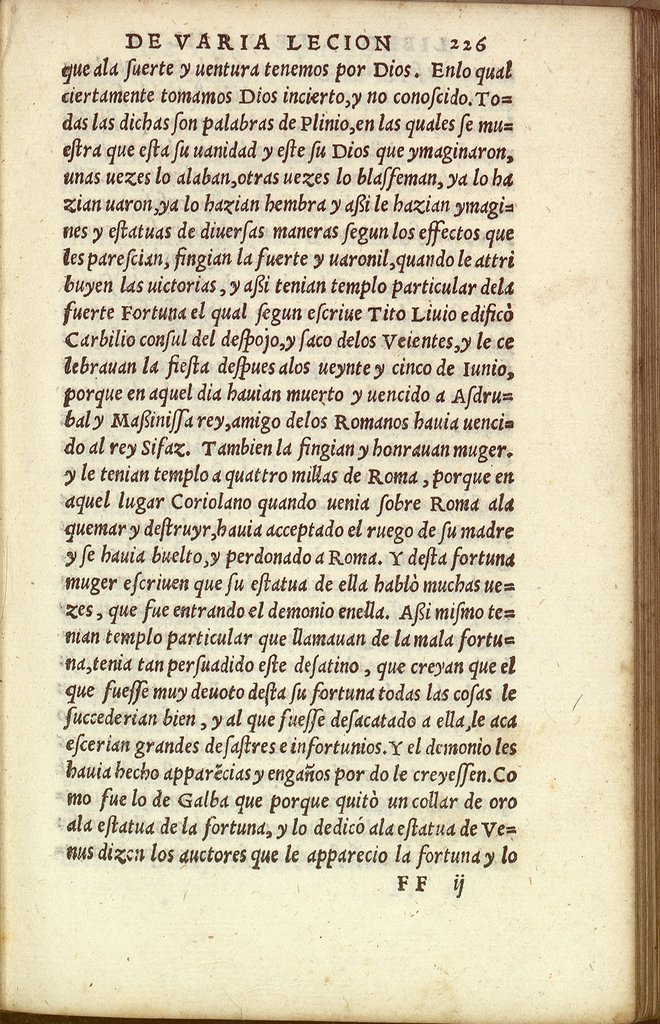 DE VARIA LECION 226
que ala ſuerte y uentura tenemos por Dios. Enlo qual
ciertamente tomamos Dios incierto,y no conoſcido.To=
das las dichas ſon palabras de Plinio,en las quales ſe mu=
eſtra que eſta ſu uanidad y eſte ſu Dios que ymaginaron,
unas uezes lo alaban,otras uezes lo blaſfeman, ya lo ha
zian uaron,ya lo hazian hembra y aßi le hazian ymagi=
nes y eſtatuas de diuerſas maneras ſegun los effectos que
les pareſcian, fingian la fuerte y uaronil,quando le attri
buyen las uictorias, y aßi tenian templo particular dela
fuerte Fortuna el qual ſegun eſcriue Tito Liuio edificò
Carbilio conſul del deſpojo,y ſaco delos Veientes,y le ce
lebrauan la fieſta deſpues alos ueynte y cinco de Iunio,
porque en aquel dia hauian muerto y uencido a Aſdru=
bal y Maßiniſſa rey,amigo delos Romanos hauia uenci=
do al rey Sifaz. Tambien la fingian y honrauan muger.
y le tenian templo a quattro millas de Roma, porque en
aquel lugar Coriolano quando uenia ſobre Roma ala
quemar y deſtruyr,hauia acceptado el ruego de ſu madre
y ſe hauia buelto,y perdonado a Roma. Y deſta fortuna
muger eſcriuen que ſu eſtatua de ella hablò muchas ue=
zes, que fue entrando el demonio enella. Aßi miſmo te=
nian templo particular que llamauan de la mala fortu=
na,tenia tan perſuadido eſte deſatino, que creyan que el
que fueſſe muy deuoto deſta ſu fortuna todas las coſas le
ſuccederian bien, y al que fueſſe deſacatado a ella,le aca
eſcerian grandes deſaſtres e infortunios.Y el demonio les
hauia hecho apparẽcias y engaños por do le creyeſſen.Co
mo fue lo de Galba que porque quitò un collar de oro
ala eſtatua de la fortuna, y lo dedicó ala eſtatua de Ve=
nus dizen los auctores que le apparecio la fortuna y lo
FF ij